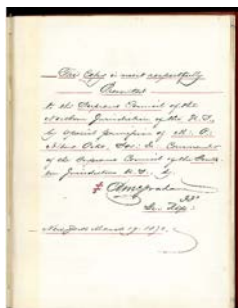 This Copy is most respectfully
Presented
to the Supreme Council of the
Northern Jurisdiction of the U.S.,
by special permission of Ill: B:
Albert Pike, Sov: Gr: Commander
of the Supreme Council of the South-
ern Jurisdiction U.S., by
33°
New York March 19. 1870.